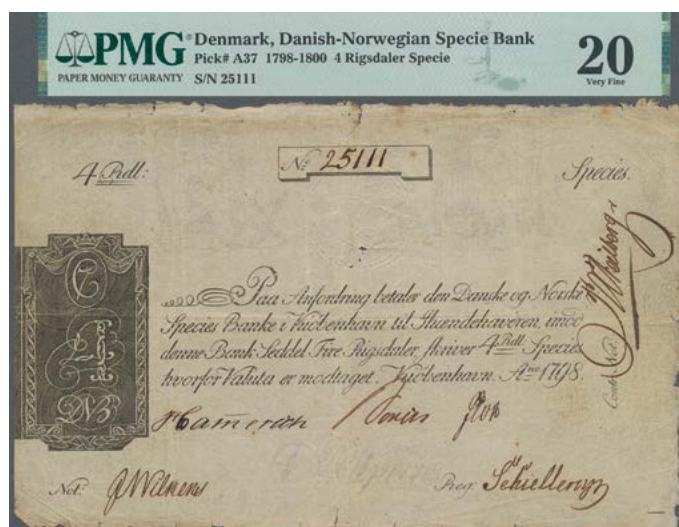 PMG
PAPER MONEY GUARANTY
Denmark, Danish-Norwegian Specie Bank
Pick# A37 1798-1800 4 Rigsdaler Specie
S/N 25111
20
Very Fine
4 Rdl:
No 25111
Species.
Paa Anfordring betaler den Danske og Norske
Species Banke i Kiøbenhavn til Ihændehaveren, imod
denne Bank-Seddel Fire Rigsdaler, skriver 4 Rdl. Species
hvorfor Valuta er modtaget. Kiøbenhavn. Ano 1798.
Not: